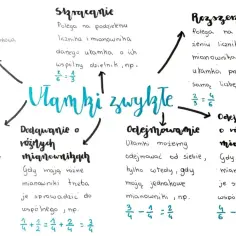 Skracanie
Polega na podzieleniu
licznika i mianownika
danego ułamka o ich
wspólny dzielnik, np.
3/6 = 1/3
Rozszerz
Polega na
żeniu liczni
mianownik
ułamka, po
samą liczbę
2/3 = 4/6
Ułamki zwykłe
Dodawanie o
różnych
mianownikach
Gdy mają różne
mianowniki trzeba
je sprowadzić do
wspólnego, np.
1/4 + 1/2 = 1/4 + 2/4 = 3/4
Odejmowanie
Ułamki możemy
odejmować od siebie,
tylko wtedy, gdy
mają jednakowe
mianowniki, np.
3/4 - 1/4 = 2/4
Odej
Gdy
mia
je s
wspó